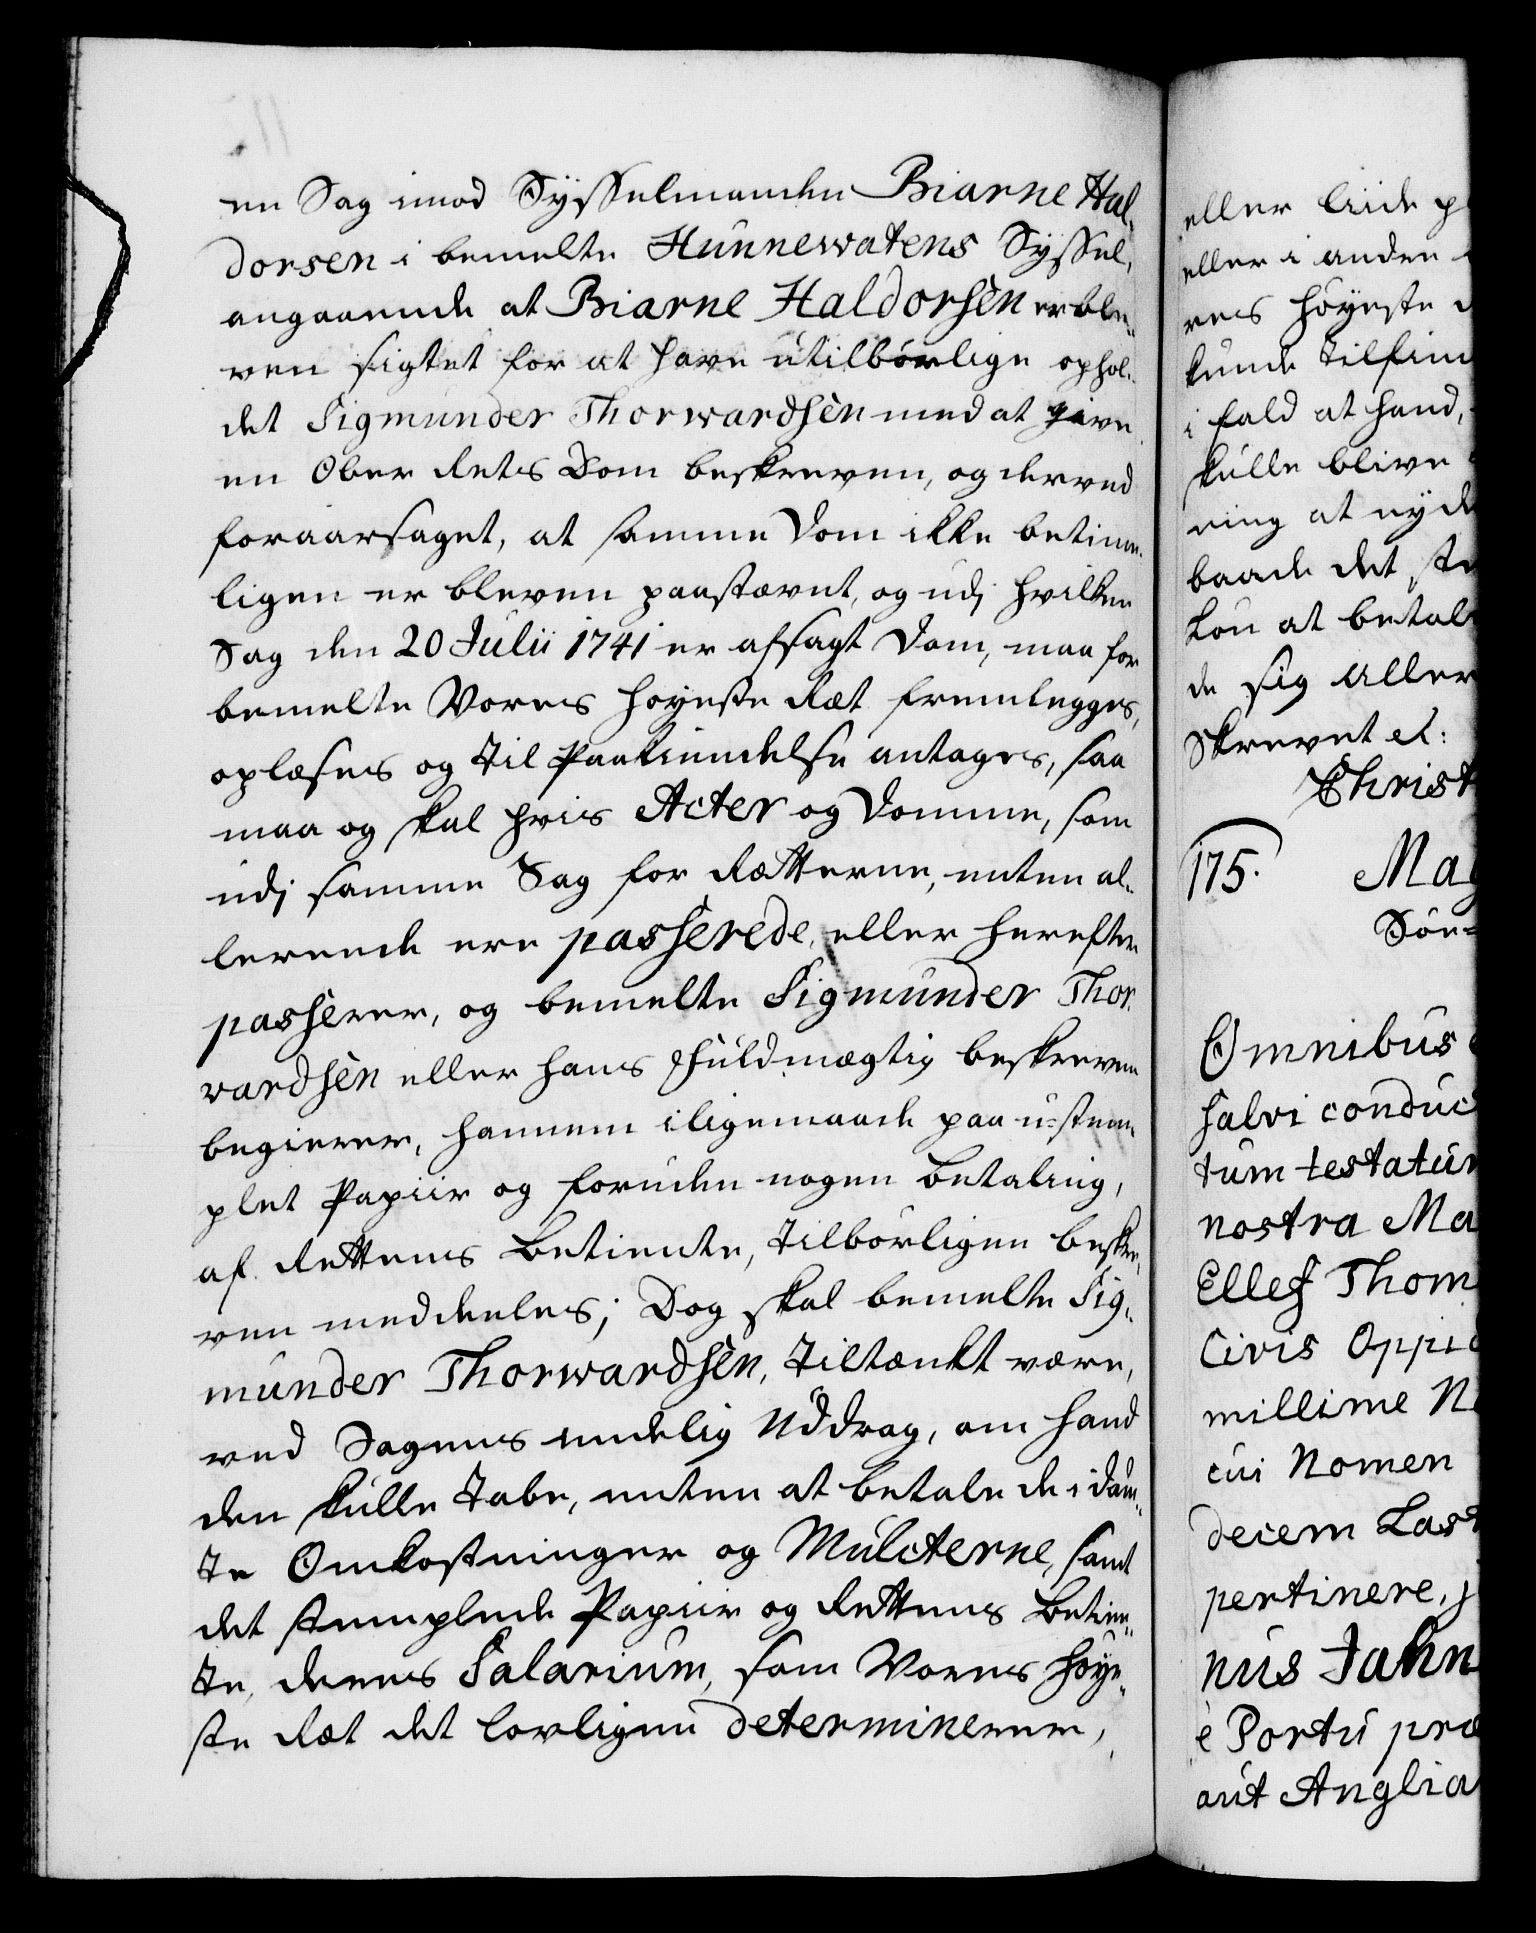 en Sag imod Sysselmanden Biarne Hal-
dorsen i bemelte Hunnewatens Syssel,
angaaende at Biarne Haldorsen er ble-
ven sigtet for at have utilbørlige ophol-
det Sigmunder Thorwardsen med at give
en Ober Rets Dom beskreven, og derved
foraarsaget, at samme Dom ikke betime-
ligen er bleven paastævnt, og udj hvilken
Sag den 20 Julii 1741 er afsagt Dom, maa for
bemelte Vores høyeste Ræt fremlegges,
oplæses og til Paakiendelse antages, saa
maa og skal hvis Acter og Domme, som
udj samme Sag for Rætterne, enten al-
lereede ere passerede, eller herefter
passerer, og bemelte Sigmunder Thor-
vardsen eller hans Fuldmægtig beskreven
begierer, hannem iligemaade paa u-stem-
plet Papiir og foruden nogen Betaling,
af Rettens Betiente, tilbørligen beskre-
ven meddeeles; Dog skal bemelte Sig-
munder Thorwardsen, tiltænkt være,
ved Sagens endelig Uddrag, om hand
den skulle tabe, enten at betale de i døm-
te Omkostninger og Mulcterne, samt
det stemplede Papiir og Rettens Betien-
te, deres Salarium, som Vores høye-
ste Ræt det lovligen determinerer,
eller liide p
eller i anden
res høyeste
kunde tilfin
i fald at hand,
skulle blive
ring at nyde
baade det ste
Lou at betal
de sig aller
Skrevet et:
Christ
175. Mag
Søe-
Omnibus
salvi conduc
tum testatur
nostra Ma
Ellef Thom
Civis Oppid
millime N
cui Nomen
decem Last
pertinere, j
nus Jahn
è Portu præ
aut Anglia